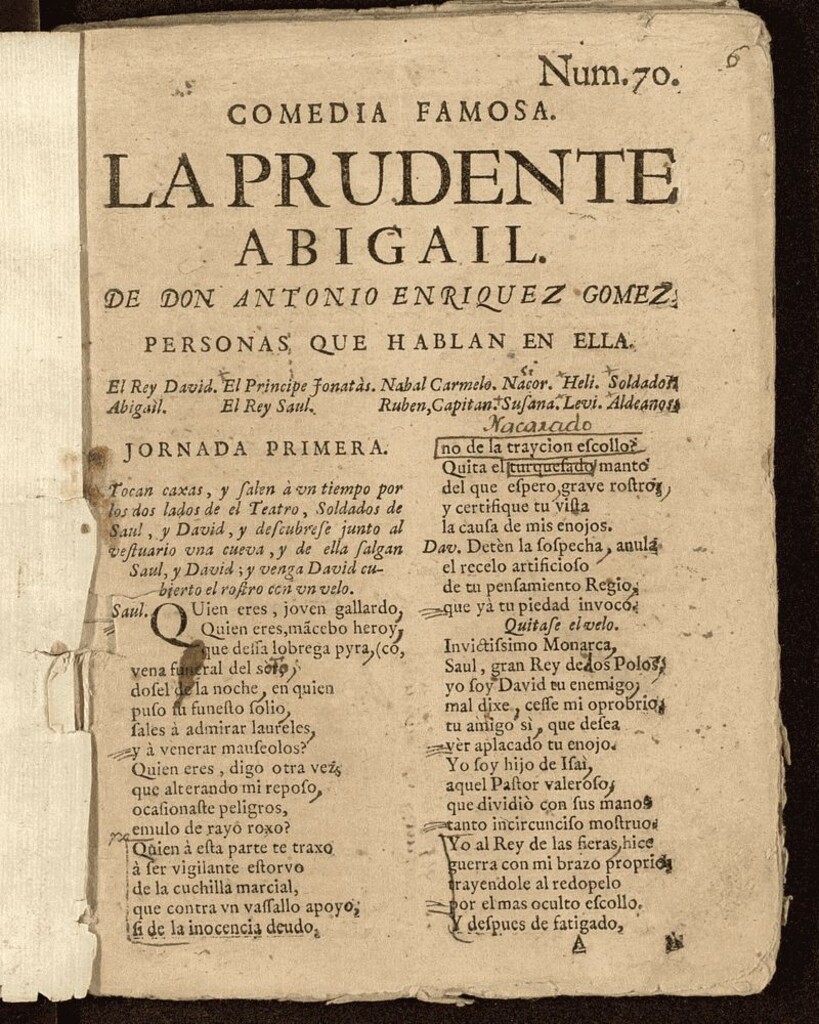 6
Num.70.
COMEDIA FAMOSA.
LA PRUDENTE
ABIGAIL.
DE DON ANTONIO ENRIQUEZ GOMEZ.
PERSONAS QUE HABLAN EN ELLA.
El Rey David. El Principe Jonatàs. Nabal Carmelo. Nacor. Heli. Soldados
Abigail. El Rey Saul. Ruben, Capitan. Susana. Levi. Aldeanos
JORNADA PRIMERA.
Tocan caxas, y ſalen à vn tiempo por
los dos lados de el Teatro, Soldados de
Saul, y David, y deſcubreſe junto al
veſtuario vna cueva, y de ella ſalgan
Saul, y David; y venga David cu-
bierto el roſtro con vn velo.
Saul. QUien eres, joven gallardo,
Quien eres, mãcebo heroy,
que deſſa lobrega pyra, (co,
vena funeral del soto,
doſel de la noche, en quien
puſo ſu funeſto ſolio,
ſales à admirar laureles,
y à venerar mauſeolos?
Quien eres, digo otra vez,
que alterando mi repoſo,
ocaſionaſte peligros,
emulo de rayo roxo?
no
Quien à eſta parte te traxo
à ſer vigilante eſtorvo
de la cuchilla marcial,
que contra vn vaſſallo apoyo,
ſi de la inocencia deudo,
Nacarado
no de la traycion eſcollo?
Quita el turqueſado manto
del que eſpero, grave roſtro,
y certifique tu viſta
la cauſa de mis enojos.
Dav. Detèn la ſoſpecha, anula
el recelo artificioso
de tu penſamiento Regio,
que yà tu piedad invocó.
Quitaſe el velo.
Invictiſsimo Monarca,
Saul, gran Rey de los Polos,
yo ſoy David tu enemigo;
mal dixe, ceſſe mi oprobrio,
tu amigo sì, que deſea
vèr aplacado tu enojo.
Yo ſoy hijo de Iſaì,
aquel Paſtor valeroſo,
que dividiò con ſus manos
tanto incircunciſo moſtruo.
Yo al Rey de las fieras, hice
guerra con mi brazo proprio,
trayendole al redopelo
por el mas oculto eſcollo.
Y deſpues de fatigado,
A